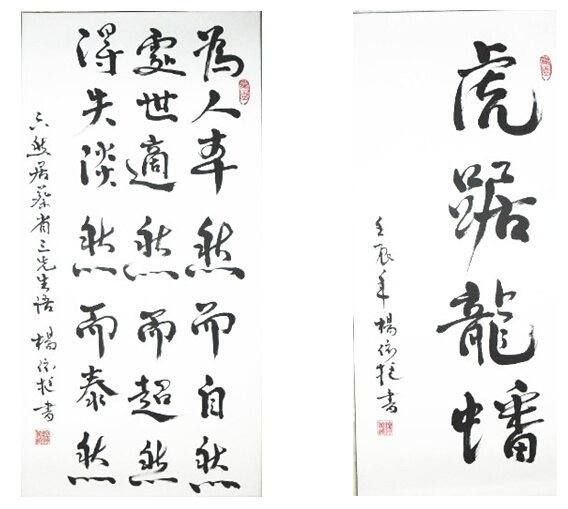 為人率然而自然
處世適然而超然
得失淡然而泰然
六然居蔡省三先生語 楊書
虎踞龍蟠
壬辰年 楊書